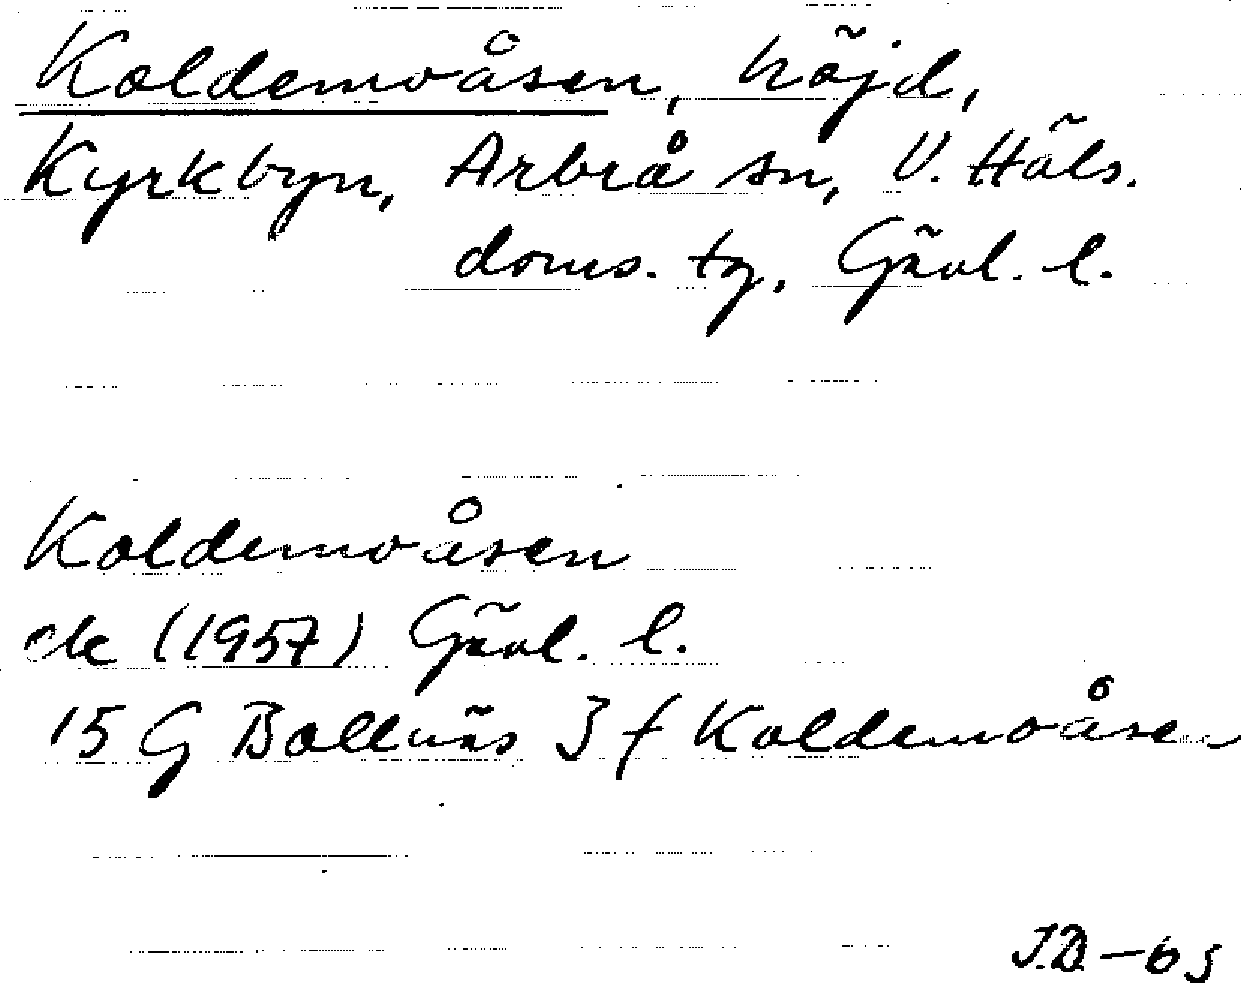 Koldemoåsen, höjd,
Kyrkbyn, Arbrå sn, V. Häls.
doms. tg, Gävl. l.
Koldemoåsen
ek (1957) Gävl. l.
15 G Bollnäs 3 f Koldemoåsen
J.D. - 65